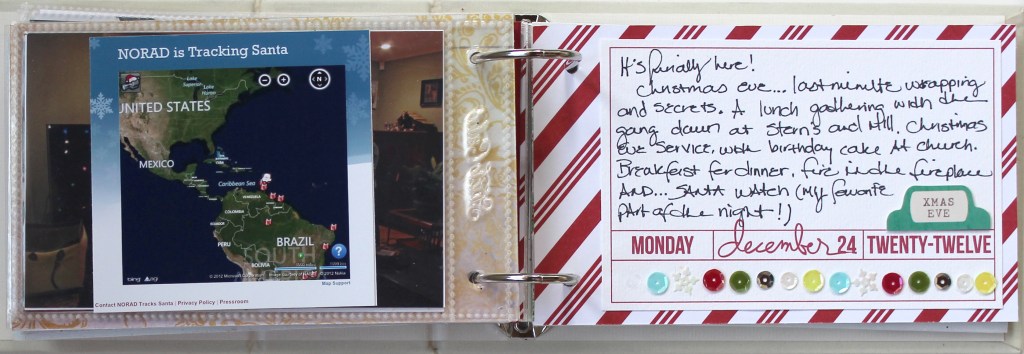 NORAD is Tracking Santa
Lake Superior
Lake Huron
N
UNITED STATES
MEXICO
Caribbean Sea
VENEZUELA
COLOMBIA
ECUADOR
PERU
BRAZIL
SOUTH
BOLIVIA
?
bing
Map Support
Contact NORAD Tracks Santa | Privacy Policy | Pressroom
It's finally here!
Christmas eve... last minute wrapping
and secrets. A lunch gathering with the
gang down at Stern's and Hill. Christmas
eve service, with birthday cake at church.
Breakfast for dinner, fire in the fireplace
AND... SANTA WATCH (my favorite
part of the night!)
XMAS
EVE
MONDAY december 24 TWENTY-TWELVE